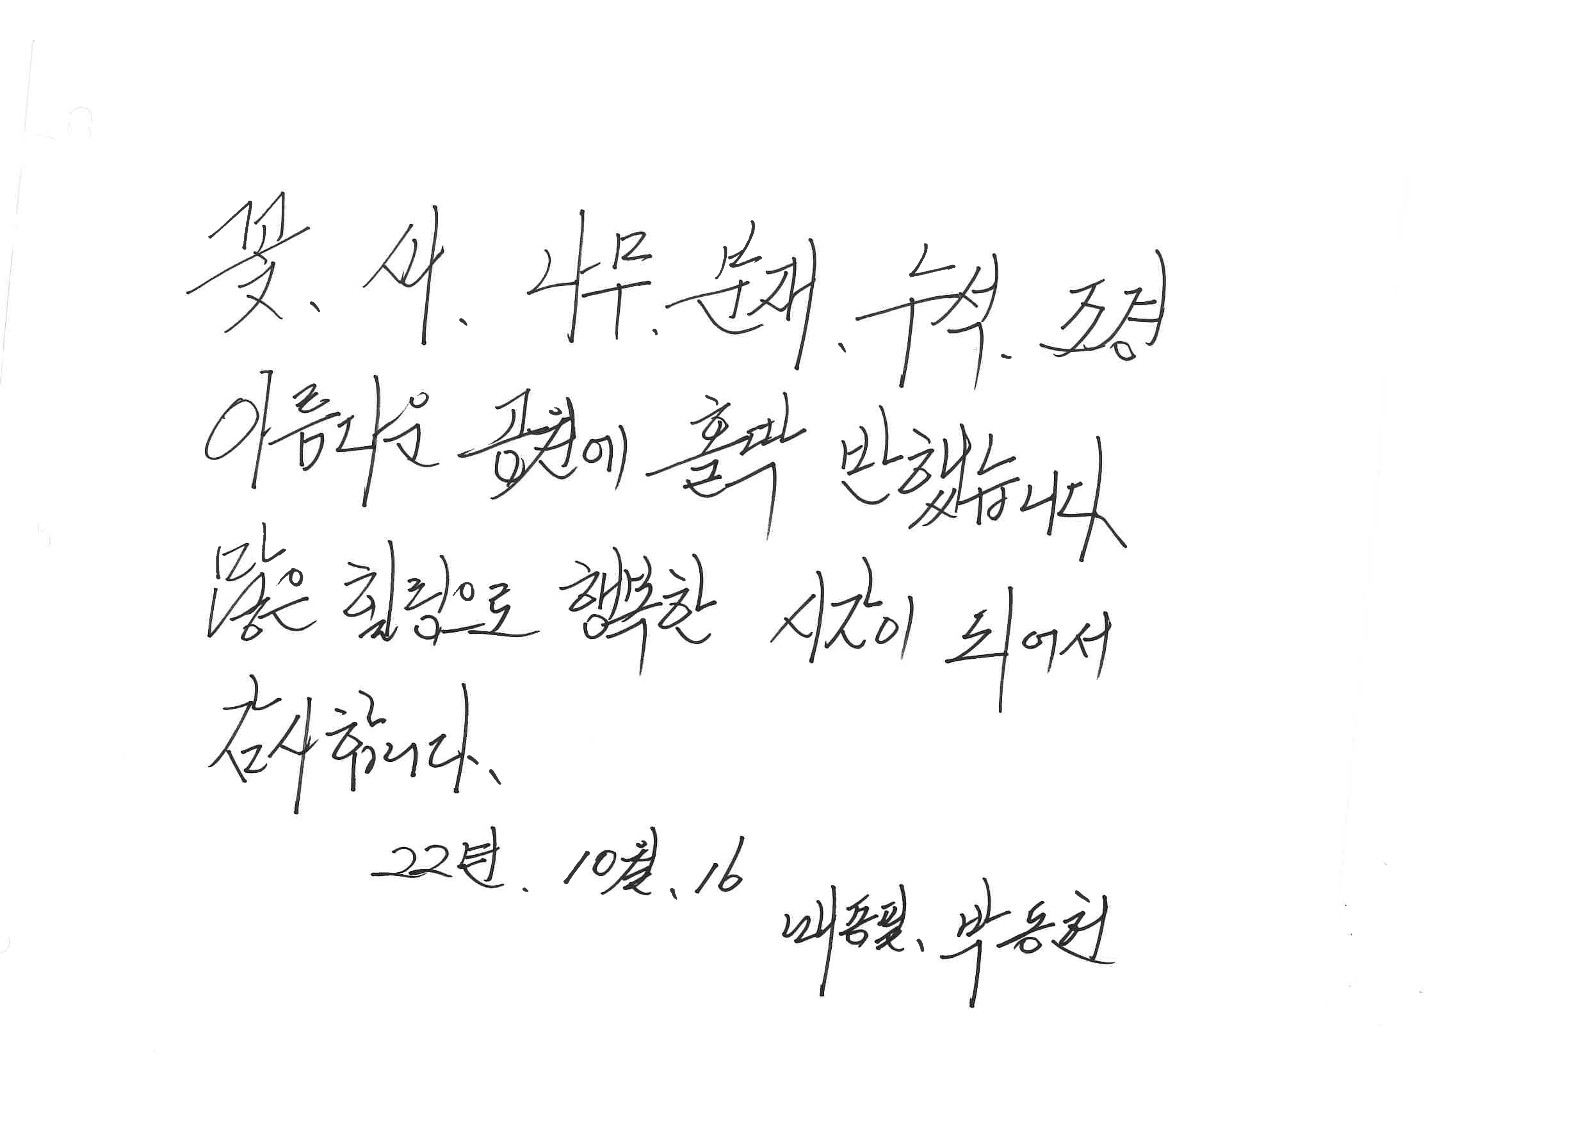 꽃、 시、 나무、 분재、 수석、 조경
아름다운 공원에 홀딱 반했습니다
많은 힐링으로 행복한 시간이 되어서
감사합니다、
22년. 10월、16
배종필、 박동헌